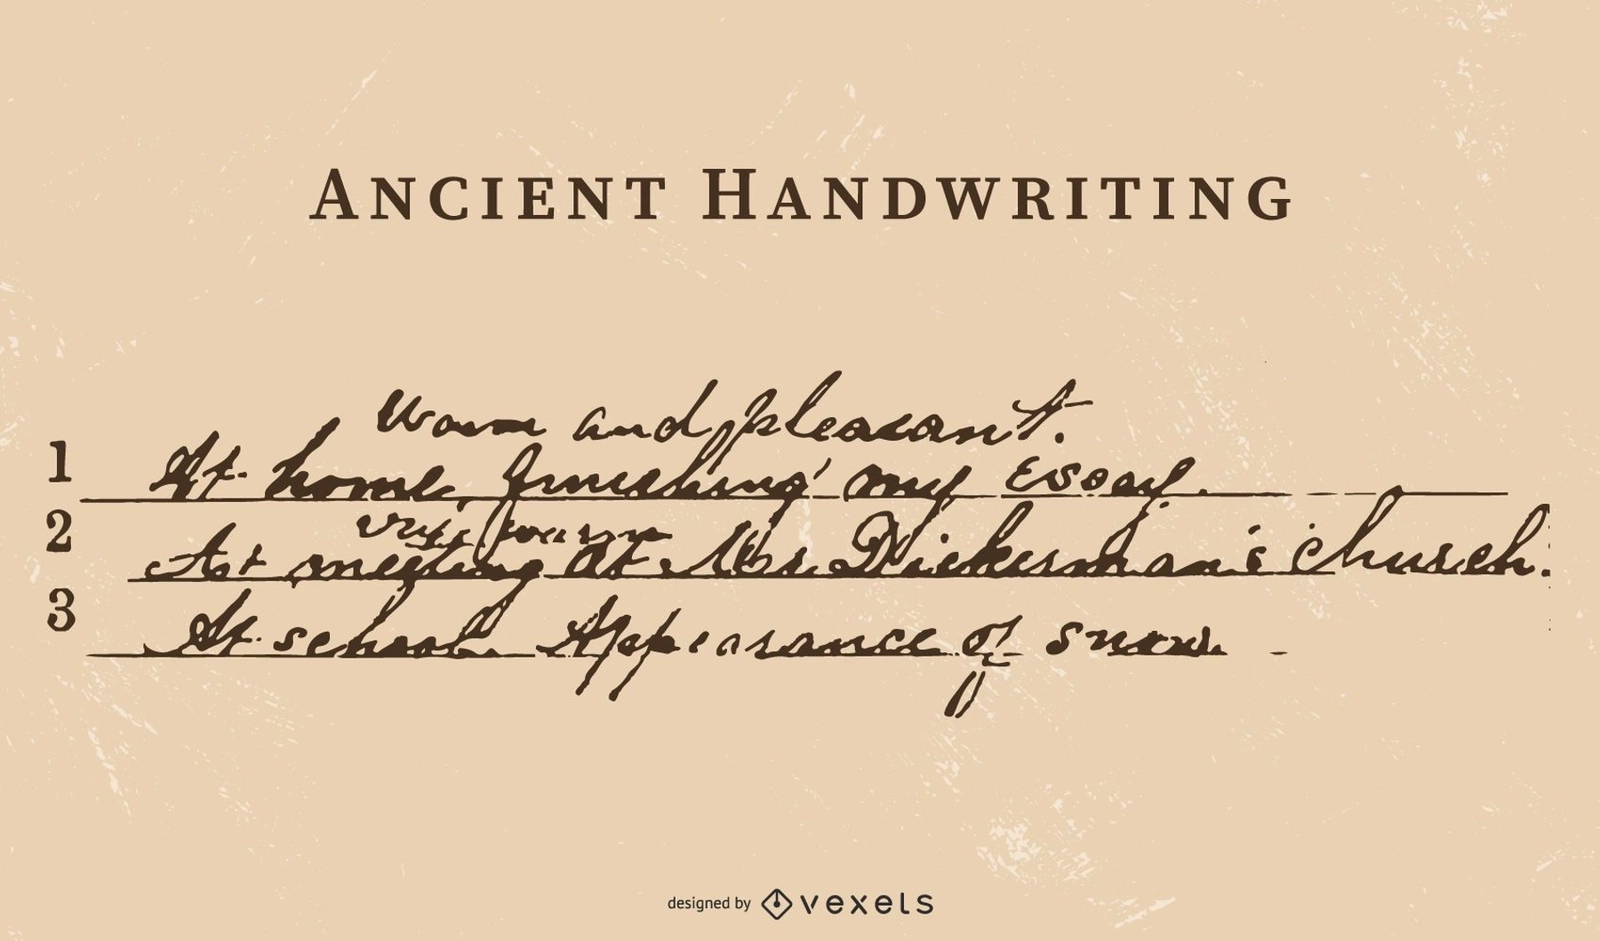 Ancient Handwriting
Warm and pleasant.
1 At home, finishing my essay.
very warm
2 At meeting at Mr. Dickerman's church.
3 At school. Appearance of snow.
designed by vexels